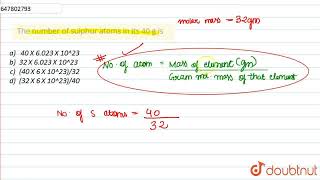 647802793
molar mass = 32gm
The number of sulphur atoms in its 40 g is
a) 40 X 6.023 X 10^23
b) 32 X 6.023 X 10^23
c) (40 X 6 X 10^23)/32
d) (32 X 6 X 10^23)/40
No. of atom = Mass of element (gm)
Gram mass of that element
No. of S atoms = 40
32
doubtnut